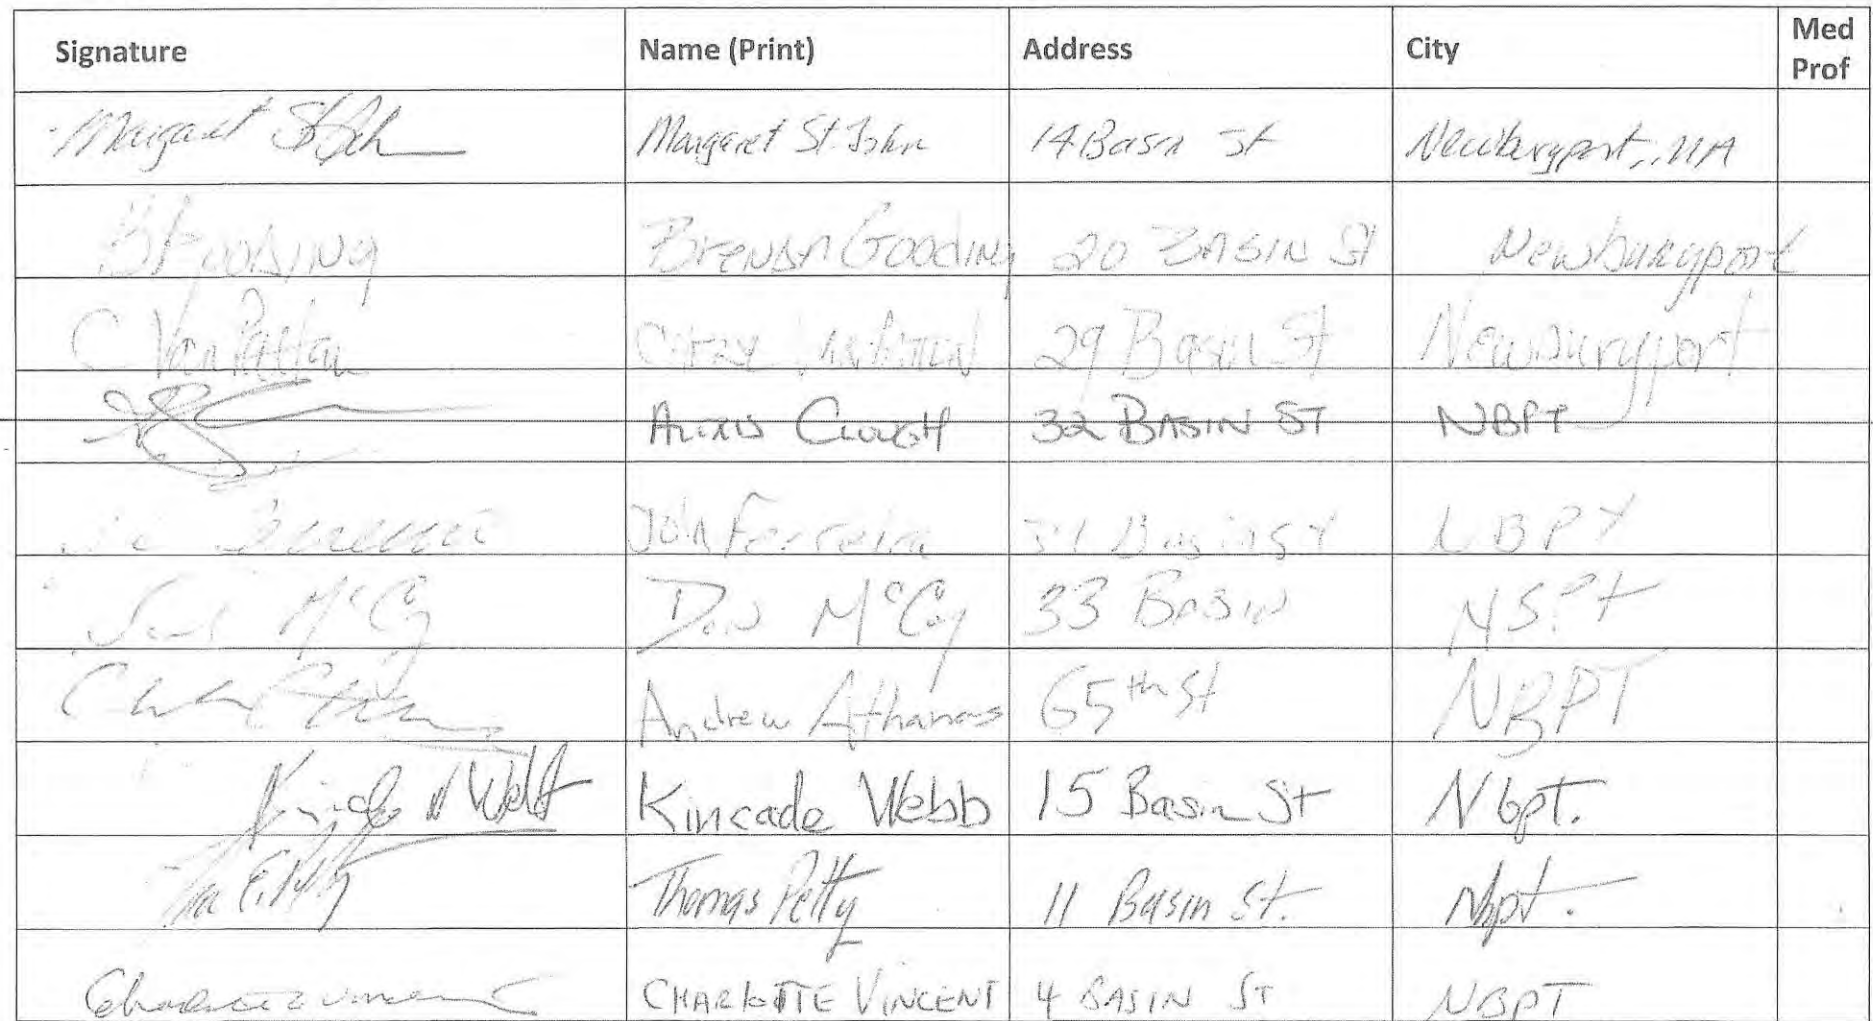 Signature Name (Print) Address City Med Prof
Margaret St John Margaret St. John 14 Basin St Newburyport, MA
B Gooding Brenda Gooding 20 Basin St Newburyport
C Van Patten Van Patten 29 Basin St Newburyport
Alexis Clough 32 Basin St NBPT
John Ferreira 31 Basin St NBPT
McCoy McCoy 33 Basin NBPt
Andrew Athanas 65th St NBPT
Kincade Webb Kincade Webb 15 Basin St Nbpt.
Thomas Petty 11 Basin St. Nbpt.
Charlotte Vincent CHARLOTTE VINCENT 4 BASIN ST NBPT